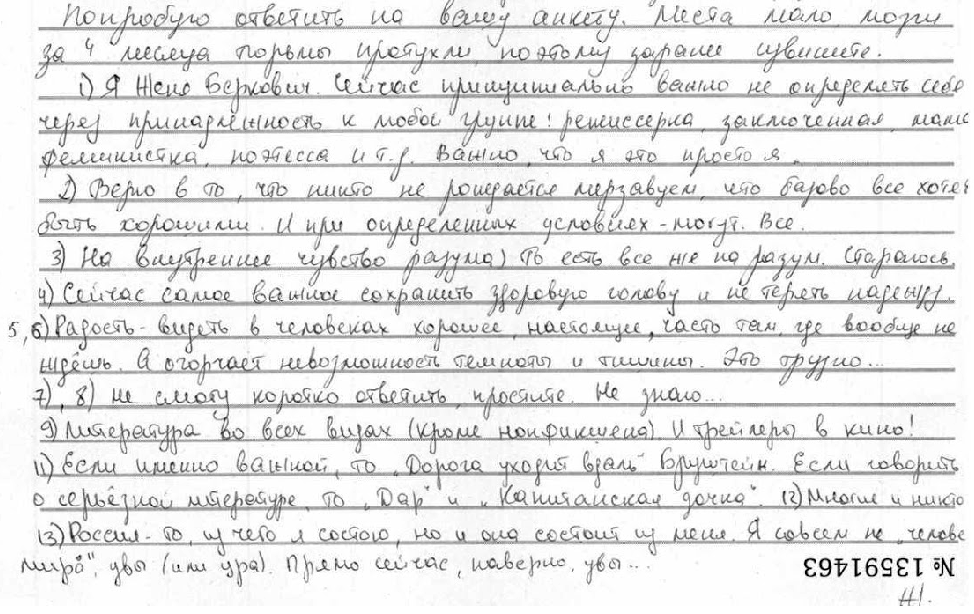 Попробую ответить на вашу анкету. Места мало, мозги
за 4 месяца тюрьмы протухли, поэтому заранее извините.
1) Я Женя Беркович. Сейчас принципиально важно не определять себя
через принадлежность к любой группе: режиссерка, заключенная, мама
феминистка, поэтесса и т.д. Важно, что я это просто я.
2) Верю в то, что никто не рождается мерзавцем, что базово все хотят
быть хорошими. И при определенных условиях - могут. Все.
3) На внутреннее чувство разума) То есть все же на разум. Стараюсь
4) Сейчас самое важное сохранить здоровую голову и не терять надежду.
5, 6) Радость - видеть в человеках хорошее, настоящее, часто там, где вообще не
ждёшь. А огорчает невозможность темноты и тишины. Это трудно...
7), 8) Не смогу коротко ответить, простите. Не знаю...
9) Литература во всех видах (кроме нонфикшена). И трейлеры в кино!
11) Если именно важной, то "Дорога уходит вдаль" Бруштейн. Если говорить
о серьёзной литературе, то "Дар" и "Капитанская дочка". 12) Многие и никто
13) Россия - то, из чего я состою, но и она состоит из меня. Я совсем не "челове
мира", увы (или ура). Прямо сейчас, наверно, увы...
№ 13591463